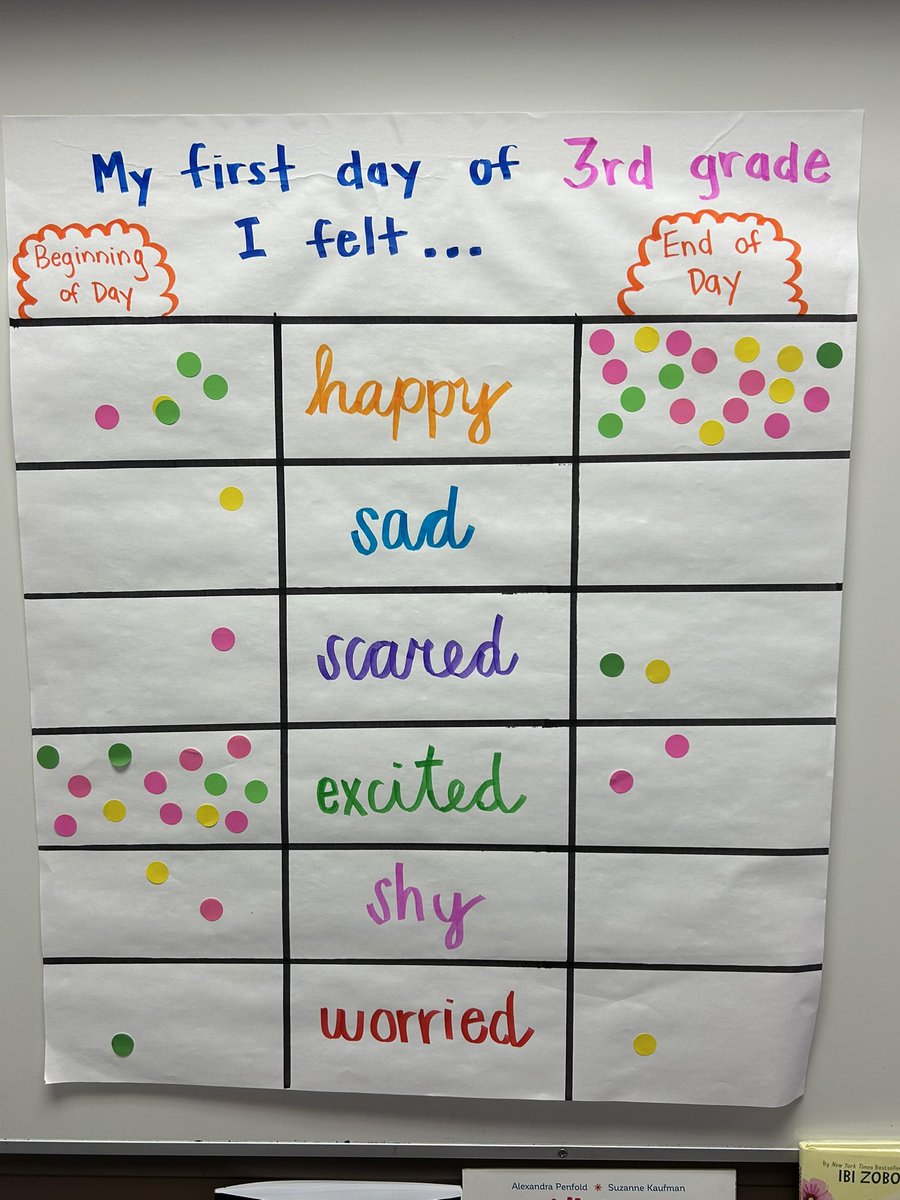 My first day of 3rd grade
I felt...
Beginning
of Day
End of
Day
happy
sad
scared
excited
shy
worried
Alexandra Penfold * Suzanne Kaufman
By New York Times Bestselling
IBI ZOBO